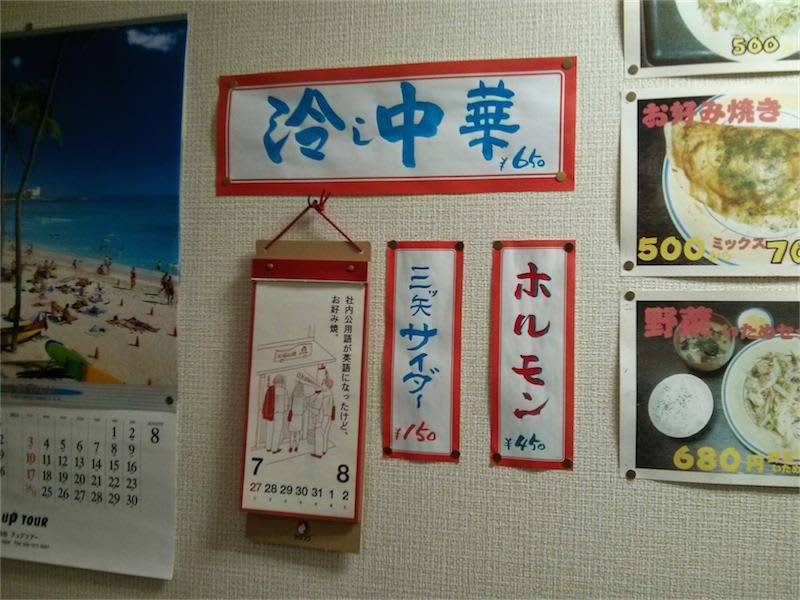 冷し中華
¥650
社内公用語が英語になったけど、
お好み焼。
7 8
27 28 29 30 31 1 2
三ッ矢サイダー
¥150
ホルモン
¥450
500
お好み焼き
500 ミックス 70
野菜
680円
8
1 2
3 4 5 6 7 8 9
10 11 12 13 14 15 16
17 18 19 20 21 22 23
25 26 27 28 29 30
UP TOUR